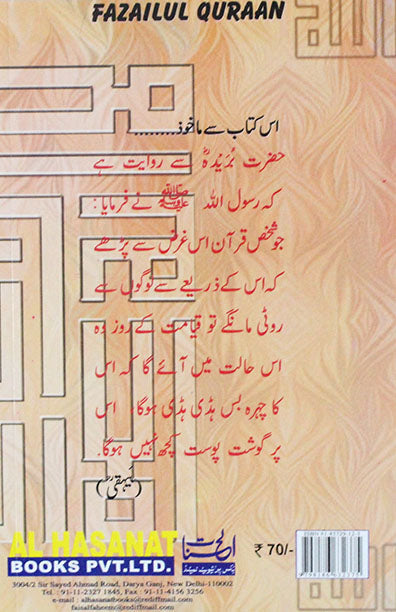 FAZAILUL QURAAN
اس کتاب سے ماخوذ..........
حضرت بُرَیْدہؓ سے روایت ہے
کہ رسول اللہ ﷺ نے فرمایا:
جو شخص قرآن اس غرض سے پڑھے
کہ اس کے ذریعے سے لوگوں سے
روٹی مانگے تو قیامت کے روز وہ
اس حالت میں آئے گا کہ اس
کا چہرہ بس ہڈی ہڈی ہوگا، اس
پر گوشت پوست کچھ نہیں ہوگا۔
(بیہقیؒ)
AL HASANAT
BOOKS PVT.LTD.
الحسنات
بکس پرائیویٹ لمیٹڈ
₹ 70/-
3004/2 Sir Sayed Ahmad Road, Darya Ganj, New Delhi-110002
Tel : 91-11-2327 1845, Fax : 91-11-4156 3256
e-mail : alhasanatbooks@rediffmail.com
faisalfaheem@rediffmail.com